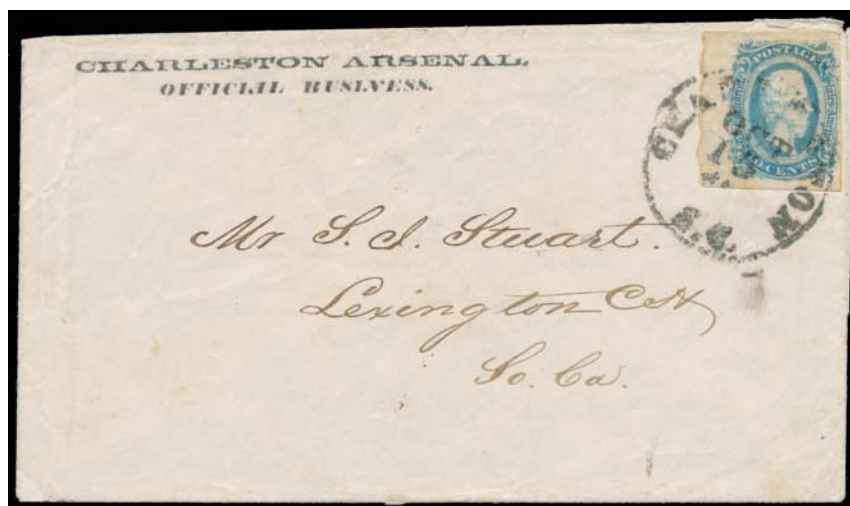 CHARLESTON ARSENAL,
OFFICIAL BUSINESS.
POSTAGE
CENTS
CHARLESTON
OCT
S.C.
Mr S. J. Stuart.
Lexington CH
So. Ca.